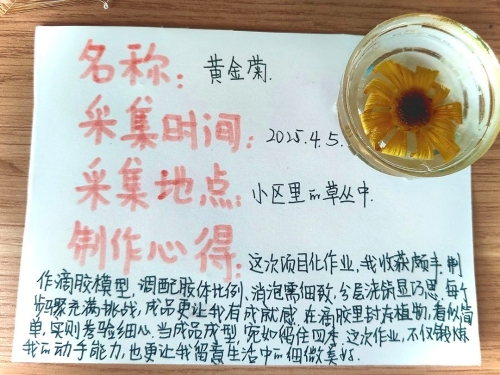 名称：黄金菊.
采集时间：2025.4.5.
采集地点：小区里的草丛中.
制作心得：这次项目化作业，我收获颇丰.制
作滴胶模型，调配胶体比例、消泡需细致，分层浇铸显巧思.每个
步骤充满挑战，成品更让我有成就感.在滴胶里封存植物，看似简
单，实则考验细心.当成品成型，宛如留住四季.这次作业，不仅锻炼
我的动手能力，也更让我留意生活中的细微美好.